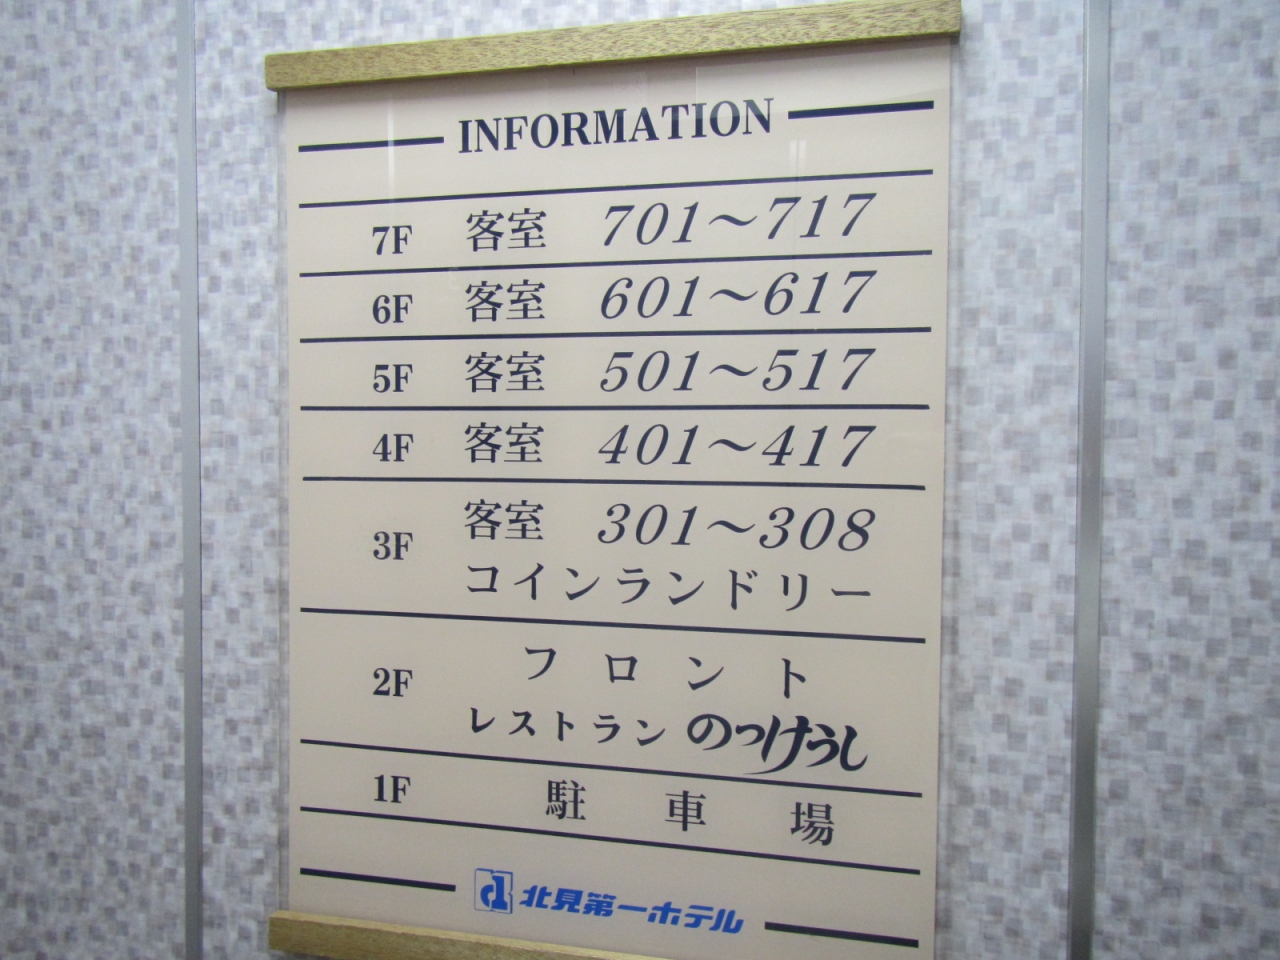 INFORMATION
7F 客室 701～717
6F 客室 601～617
5F 客室 501～517
4F 客室 401～417
3F 客室 301～308
コインランドリー
2F フロント
レストラン のっけうし
1F 駐車場
北見第一ホテル